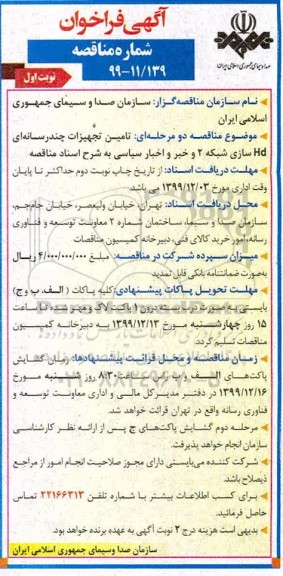 آگهی فراخوان
شماره مناقصه
۹۹-۱۱/۱۳۹
نوبت اول
صدا و سیمای جمهوری اسلامی ایران
نام سازمان مناقصه‌گزار: سازمان صدا و سیمای جمهوری
اسلامی ایران
موضوع مناقصه دو مرحله‌ای: تامین تجهیزات چندرسانه‌ای
Hd سازی شبکه ۲ و خبر و اخبار سیاسی به شرح اسناد مناقصه
مهلت دریافت اسناد: از تاریخ چاپ نوبت دوم حداکثر تا پایان
وقت اداری مورخ ۱۳۹۹/۱۲/۰۳ می باشد.
محل دریافت اسناد: تهران، خیابان ولیعصر، خیابان جام‌جم،
سازمان صدا و سیما، ساختمان شماره ۲ معاونت توسعه و فناوری
رسانه، امور خرید کالای فنی، دبیرخانه کمیسیون مناقصات
میزان سپرده شرکت در مناقصه: مبلغ ۴/۰۰۰/۰۰۰/۰۰۰ ریال
به‌صورت ضمانتنامه بانکی قابل تمدید
مهلت تحویل پاکات پیشنهادی: کلیه پاکات (الف، ب و ج)
بایستی به صورت دربسته درون ۱ پاکت لاک و مهر شده تا ساعت
۱۵ روز چهارشنبه مورخ ۱۳۹۹/۱۲/۱۳ به دبیرخانه کمیسیون
مناقصات تسلیم گردد.
زمان مناقصه و محل قرائت پیشنهادها: زمان گشایش
پاکت‌های الف و ب ساعت ۸:۳۰ روز شنبه مورخ
۱۳۹۹/۱۲/۱۶ در دفتر مدیرکل مالی و اداری معاونت توسعه و
فناوری رسانه واقع در تهران قرائت خواهد شد.
مرحله دوم گشایش پاکت‌های ج پس از ارائه نظر کارشناسی
سازمان انجام خواهد پذیرفت.
شرکت کننده می‌بایستی دارای مجوز صلاحیت انجام امور از مراجع
ذیصلاح باشد.
برای کسب اطلاعات بیشتر با شماره تلفن ۲۲۱۶۶۳۱۳ تماس
حاصل فرمائید.
بدیهی است هزینه درج ۲ نوبت آگهی به عهده برنده خواهد بود.
سازمان صدا وسیمای جمهوری اسلامی ایران